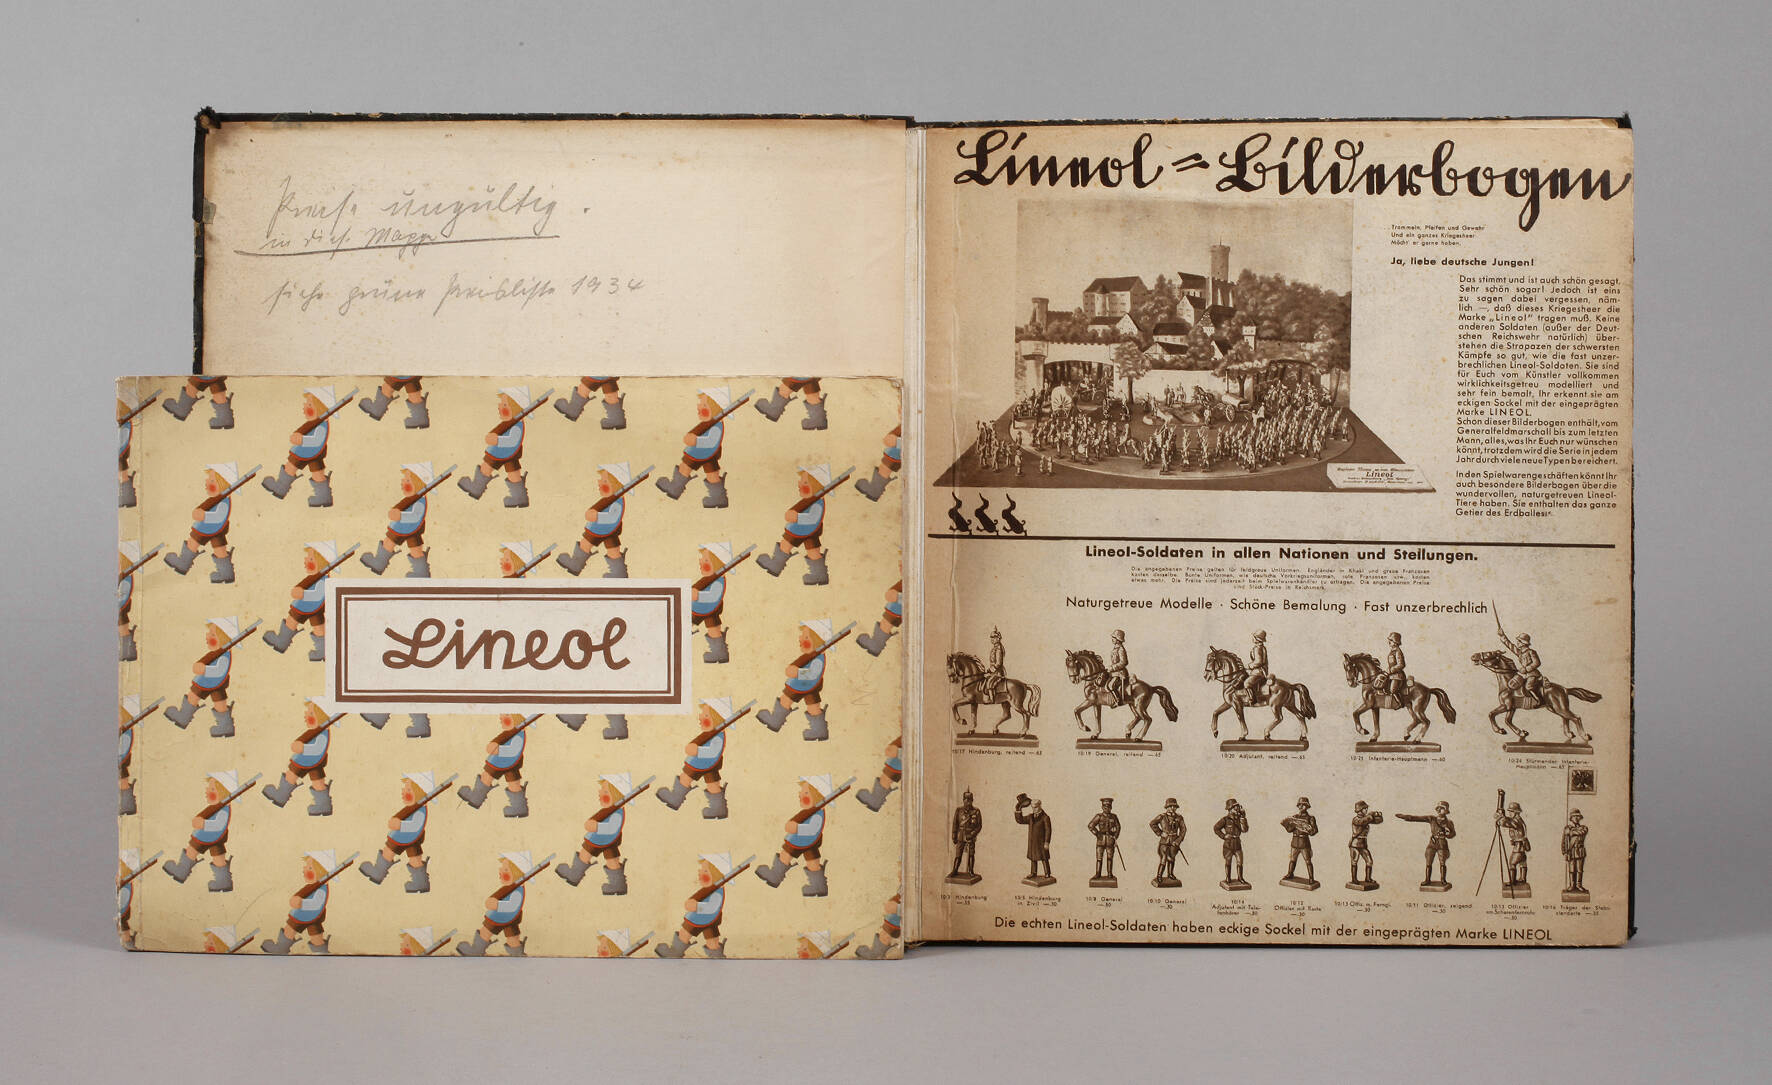 Preise ungültig.
in dies. Mappe
siehe grüne Preisliste 1934
Lineol
Lineol=Bilderbogen
Trommeln, Pfeifen und Gewehr
Und ein ganzes Kriegesheer
Möcht' er gerne haben.
Ja, liebe deutsche Jungen!
Das stimmt und ist auch schön gesagt.
Sehr schön sogar! Jedoch ist eins
zu sagen dabei vergessen, näm-
lich —, daß dieses Kriegesheer die
Marke „Lineol" tragen muß. Keine
anderen Soldaten (außer der Deut-
schen Reichswehr natürlich) über-
stehen die Strapazen der schwersten
Kämpfe so gut, wie die fast unzer-
brechlichen Lineol-Soldaten. Sie sind
für Euch vom Künstler vollkommen
wirklichkeitsgetreu modelliert und
sehr fein bemalt, Ihr erkennt sie am
eckigen Sockel mit der eingeprägten
Marke LINEOL.
Schon dieser Bilderbogen enthält, vom
Generalfeldmarschall bis zum letzten
Mann, alles, was Ihr Euch nur wünschen
könnt, trotzdem wird die Serie in jedem
Jahr durch viele neue Typen bereichert.
In den Spielwarengeschäften könnt Ihr
auch besondere Bilderbogen über die
wundervollen, naturgetreuen Lineol-
Tiere haben. Sie enthalten das ganze
Getier des Erdballes!
Lineol
Lineol-Soldaten in allen Nationen und Stellungen.
Die angegebenen Preise gelten für feldgraue Uniformen. Engländer in Khaki und graue Franzosen
kosten dasselbe. Bunte Uniformen, wie deutsche Vorkriegsuniformen, rote Franzosen usw., kosten
etwas mehr. Die Preise sind jederzeit beim Spielwarenhändler zu erfragen. Die angegebenen Preise
sind Stück-Preise in Reichsmark.
Naturgetreue Modelle · Schöne Bemalung · Fast unzerbrechlich
10/17 Hindenburg, reitend —.65
10/19 General, reitend —.65
10/20 Adjutant, reitend —.65
10/21 Infanterie-Hauptmann —.60
10/24 Stürmender Infanterie-
Hauptmann —.65
Hindenburg
—.35
10/5 Hindenburg
in Zivil —.30
10/8 General
—.30
10/10 General
—.30
10/14
Adjutant mit Tele-
fonhörer —.30
10/12
Offizier mit Karte
—.30
10/13 Offiz. m. Ferngl.
—.30
10/11 Offizier, zeigend
—.30
10/15 Offizier
am Scherenfernrohr
—.30
10/16 Träger der Stabs-
standarte —.35
Die echten Lineol-Soldaten haben eckige Sockel mit der eingeprägten Marke LINEOL